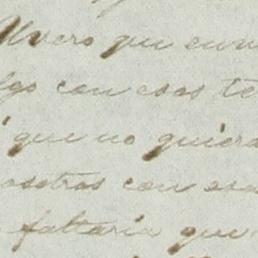 que aun
lgo con esos te
que no quiera
nosotros con esa
faltaria que